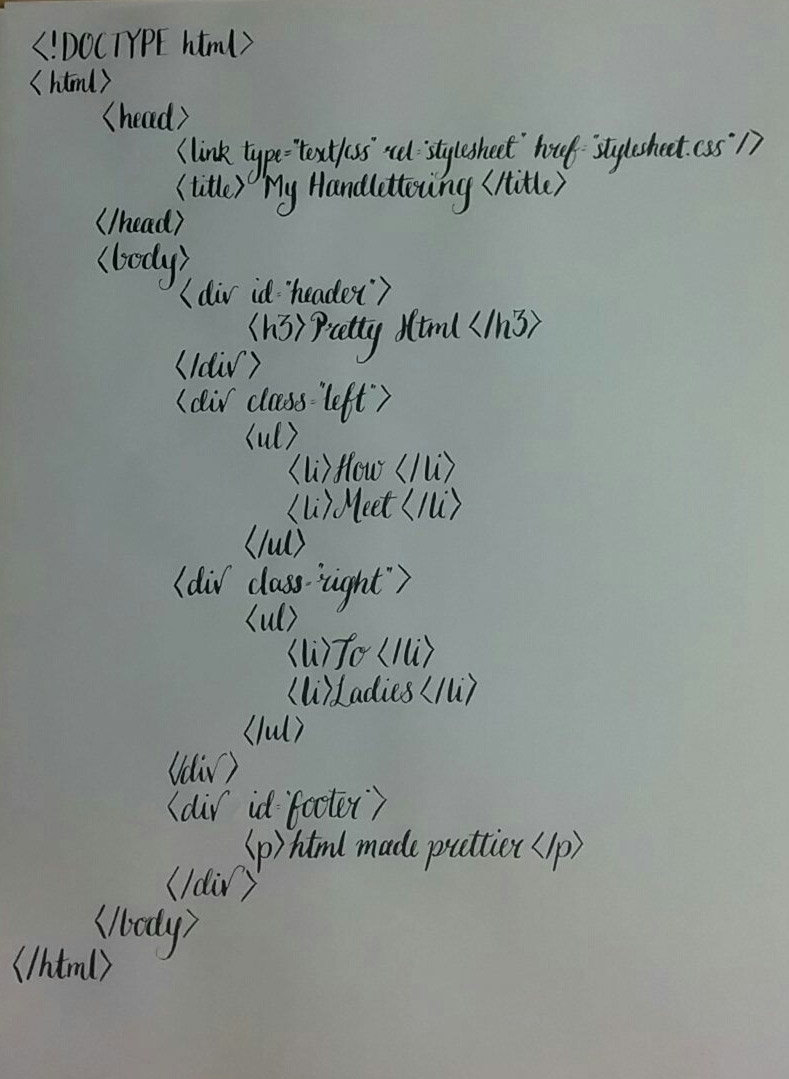 <!DOCTYPE html>
<html>
<head>
<link type="text/css" rel="stylesheet" href="stylesheet.css"/>
<title> My Handlettering </title>
</head>
<body>
<div id="header">
<h3>Pretty Html </h3>
</div>
<div class="left">
<ul>
<li>How </li>
<li>Meet </li>
</ul>
<div class="right">
<ul>
<li>To </li>
<li>Ladies </li>
</ul>
</div>
<div id="footer">
<p>html made prettier </p>
</div>
</body>
</html>